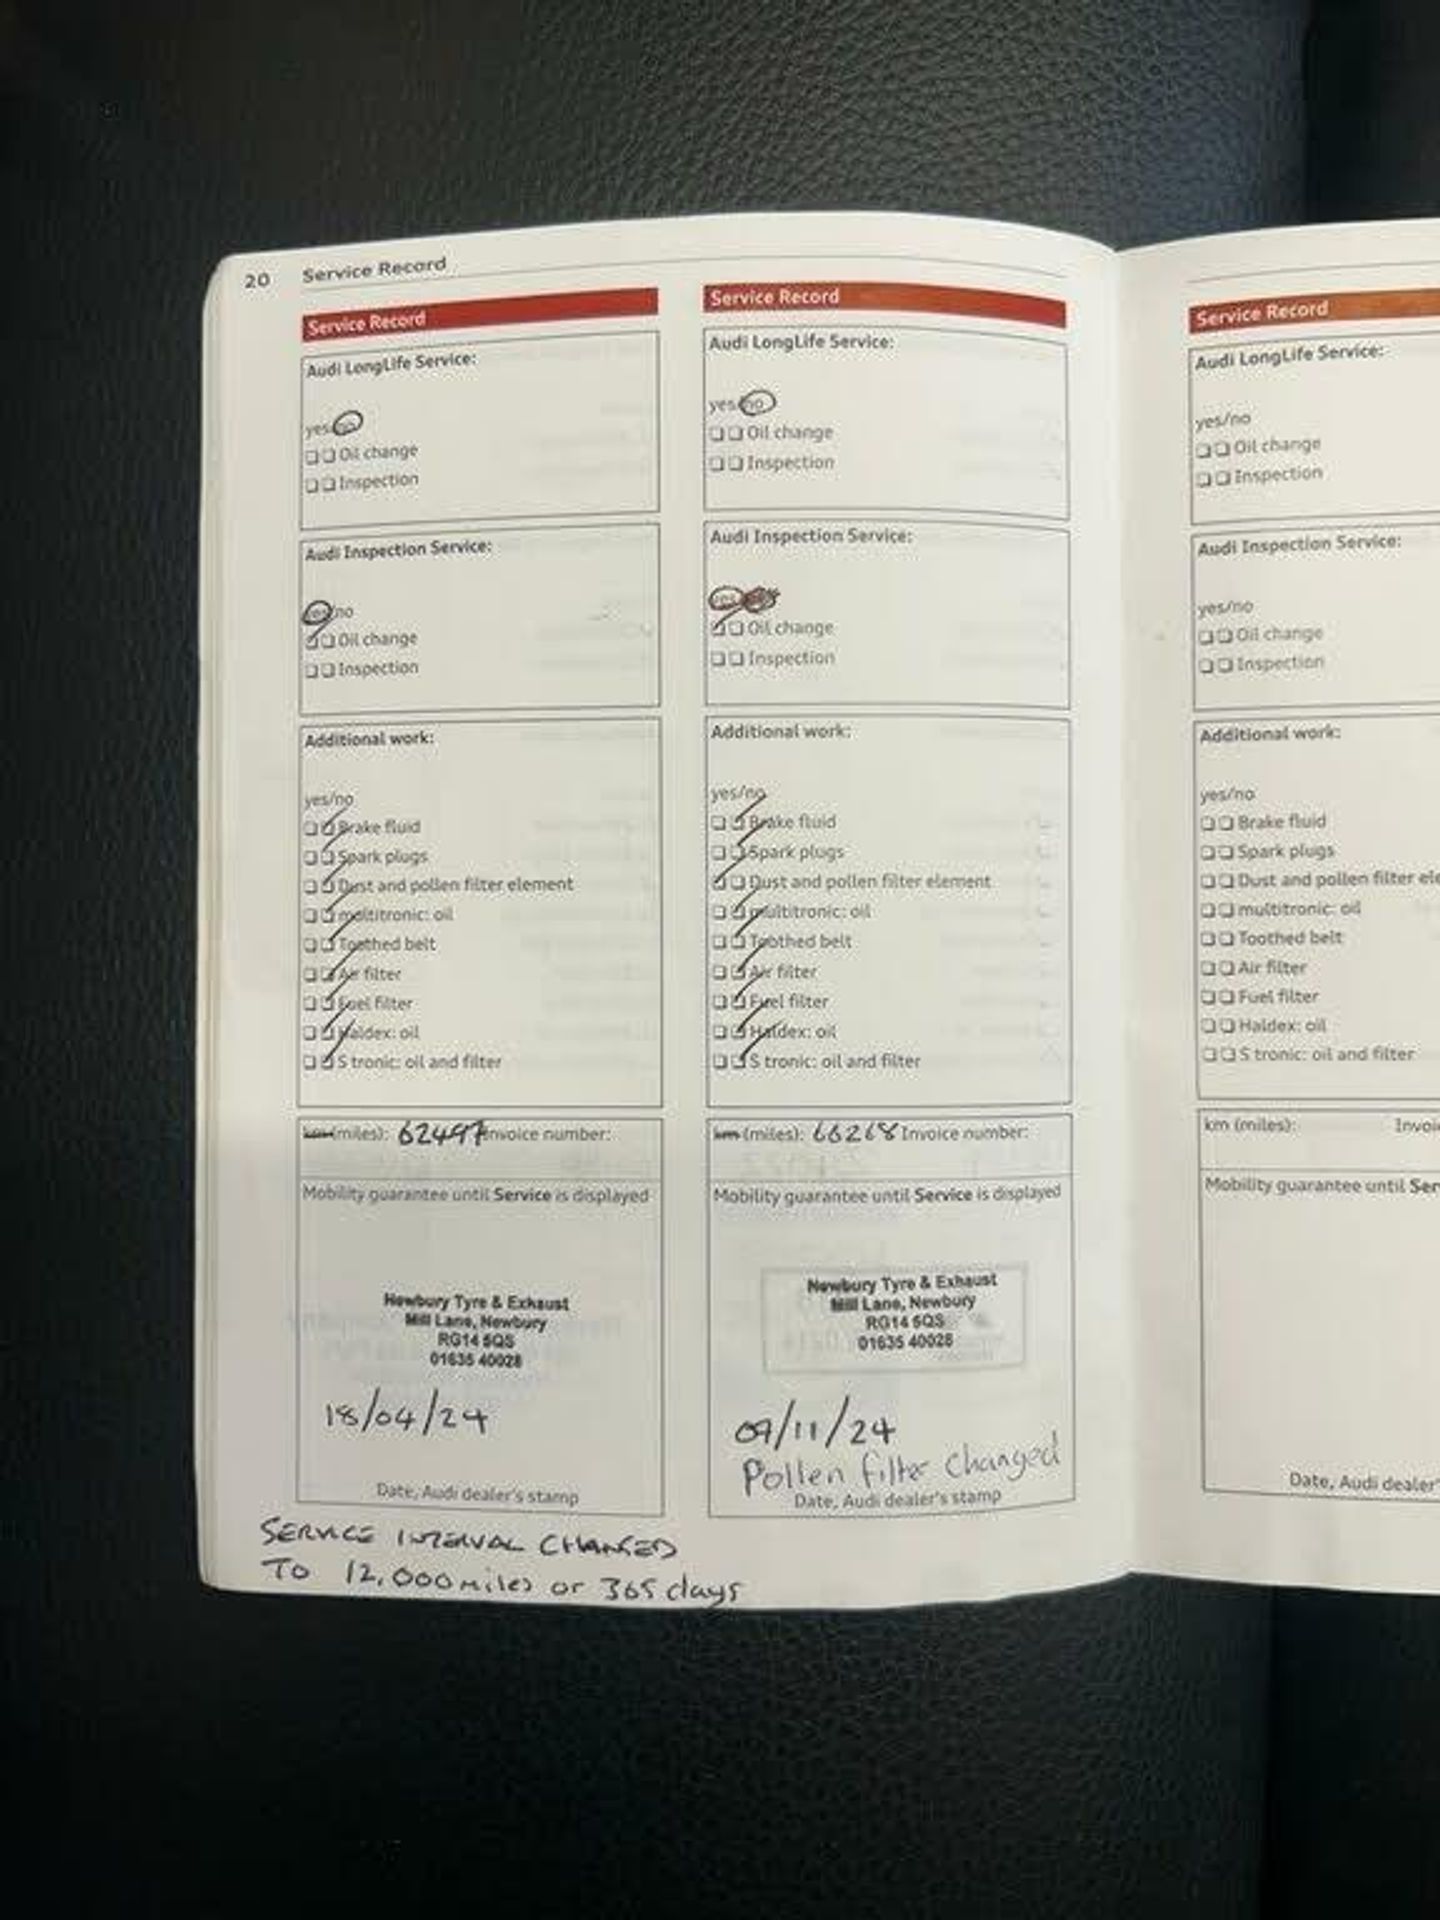 20 Service Record
Service Record
Audi LongLife Service:
yes/no
❏ ❏ Oil change
❏ ❏ Inspection
Audi Inspection Service:
yes/no
❏ ❏ Oil change
❏ ❏ Inspection
Additional work:
yes/no
❏ ❏ Brake fluid
❏ ❏ Spark plugs
❏ ❏ Dust and pollen filter element
❏ ❏ multitronic: oil
❏ ❏ Toothed belt
❏ ❏ Air filter
❏ ❏ Fuel filter
❏ ❏ Haldex: oil
❏ ❏ S tronic: oil and filter
km (miles): 62497 Invoice number:
Mobility guarantee until Service is displayed
Newbury Tyre & Exhaust
Mill Lane, Newbury
RG14 5QS
01635 40028
18/04/24
Date, Audi dealer's stamp
SERVICE INTERVAL CHANGED
TO 12,000 miles or 365 days
Service Record
Audi LongLife Service:
yes/no
❏ ❏ Oil change
❏ ❏ Inspection
Audi Inspection Service:
yes
❏ ❏ Oil change
❏ ❏ Inspection
Additional work:
yes/no
❏ ❏ Brake fluid
❏ ❏ Spark plugs
❏ ❏ Dust and pollen filter element
❏ ❏ multitronic: oil
❏ ❏ Toothed belt
❏ ❏ Air filter
❏ ❏ Fuel filter
❏ ❏ Haldex: oil
❏ ❏ S tronic: oil and filter
km (miles): 66268 Invoice number:
Mobility guarantee until Service is displayed
Newbury Tyre & Exhaust
Mill Lane, Newbury
RG14 5QS
01635 40028
07/11/24
Pollen filter changed
Date, Audi dealer's stamp
Service Record
Audi LongLife Service:
yes/no
❏ ❏ Oil change
❏ ❏ Inspection
Audi Inspection Service:
yes/no
❏ ❏ Oil change
❏ ❏ Inspection
Additional work:
yes/no
❏ ❏ Brake fluid
❏ ❏ Spark plugs
❏ ❏ Dust and pollen filter ele
❏ ❏ multitronic: oil
❏ ❏ Toothed belt
❏ ❏ Air filter
❏ ❏ Fuel filter
❏ ❏ Haldex: oil
❏ ❏ S tronic: oil and filter
km (miles): Invoi
Mobility guarantee until Ser
Date, Audi dealer'